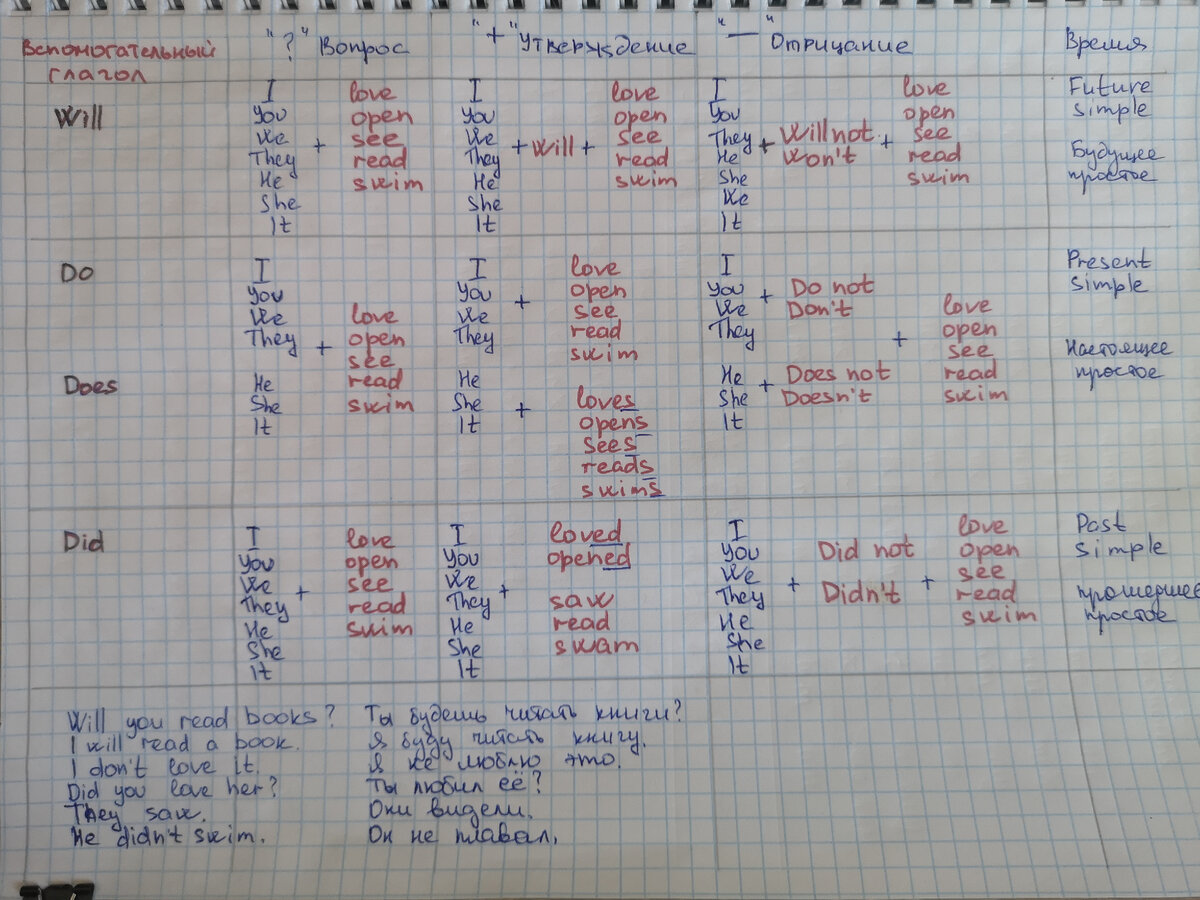 Вспомогательный глагол "?" Вопрос "+" Утверждение "—" Отрицание Время
Will
I
You
We
They
He
She
It
+
love
open
see
read
swim
I
You
We
They
He
She
It
+ will +
love
open
see
read
swim
I
You
They
He
She
We
It
+
Will not
Won't
+
love
open
see
read
swim
Future
simple
Будущее
простое
Do
Does
I
You
We
They
He
She
It
+
love
open
see
read
swim
I
You
We
They
+
love
open
see
read
swim
He
She
It
+
loves
opens
sees
reads
swims
I
You
We
They
+
Do not
Don't
He
She
It
+
Does not
Doesn't
+
love
open
see
read
swim
Present
simple
Настоящее
простое
Did
I
You
We
They
He
She
It
+
love
open
see
read
swim
I
You
We
They
He
She
It
+
loved
opened
saw
read
swam
I
You
We
They
He
She
It
+
Did not
Didn't
+
love
open
see
read
swim
Past
simple
прошедшее
простое
Will you read books? Ты будешь читать книги?
I will read a book. Я буду читать книгу.
I don't love it. Я не люблю это.
Did you love her? Ты любил её?
They saw. Они видели.
He didn't swim. Он не плавал.